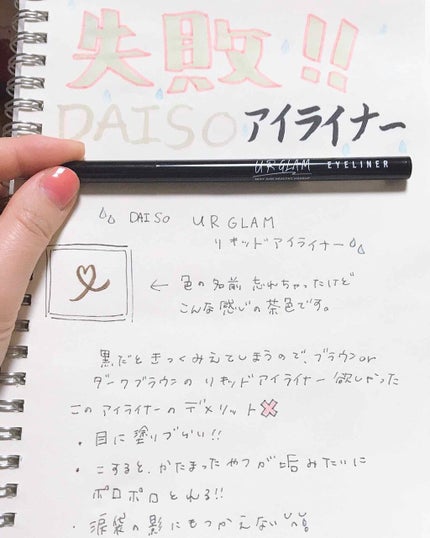 失敗!!
DAISO アイライナー
URGLAM EYELINER
DAISO UR GLAM
リキッドアイライナー
← 色の名前 忘れちゃったけど
こんな感じの茶色です。
黒だときつくみえてしまうので、ブラウンor
ダークブラウンの リキッドアイライナー 欲しかった
このアイライナーのデメリット
・目に塗りづらい!!
・こすると、かたまったやつが垢みたいに
ポロポロとれる!!
・涙袋の影にもつかえない